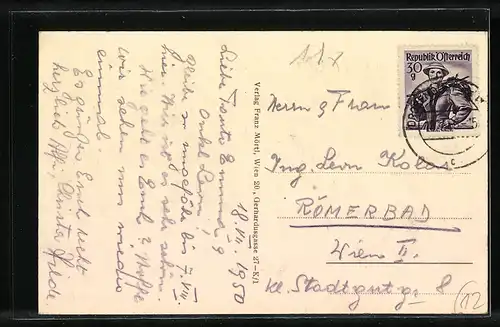 18.VII.1950
Liebe Tante Emma &
Onkel Leon!
Bleibe so ungefähr bis 7.VIII.
hier. Hier ist es sehr schön.
Wie geht es Euch? Hoffe
wir sehen uns wieder
einmal.
Es grüßen Euch recht
herzlich
Verlag Franz Mörtl, Wien 20, Gerhardusgasse 27-K/1
Republik Österreich
30
g
Herrn & Frau
Ing. Leon Kolos
RÖMERBAD
Wien II.
Kl. Stadtgutg. 8
12